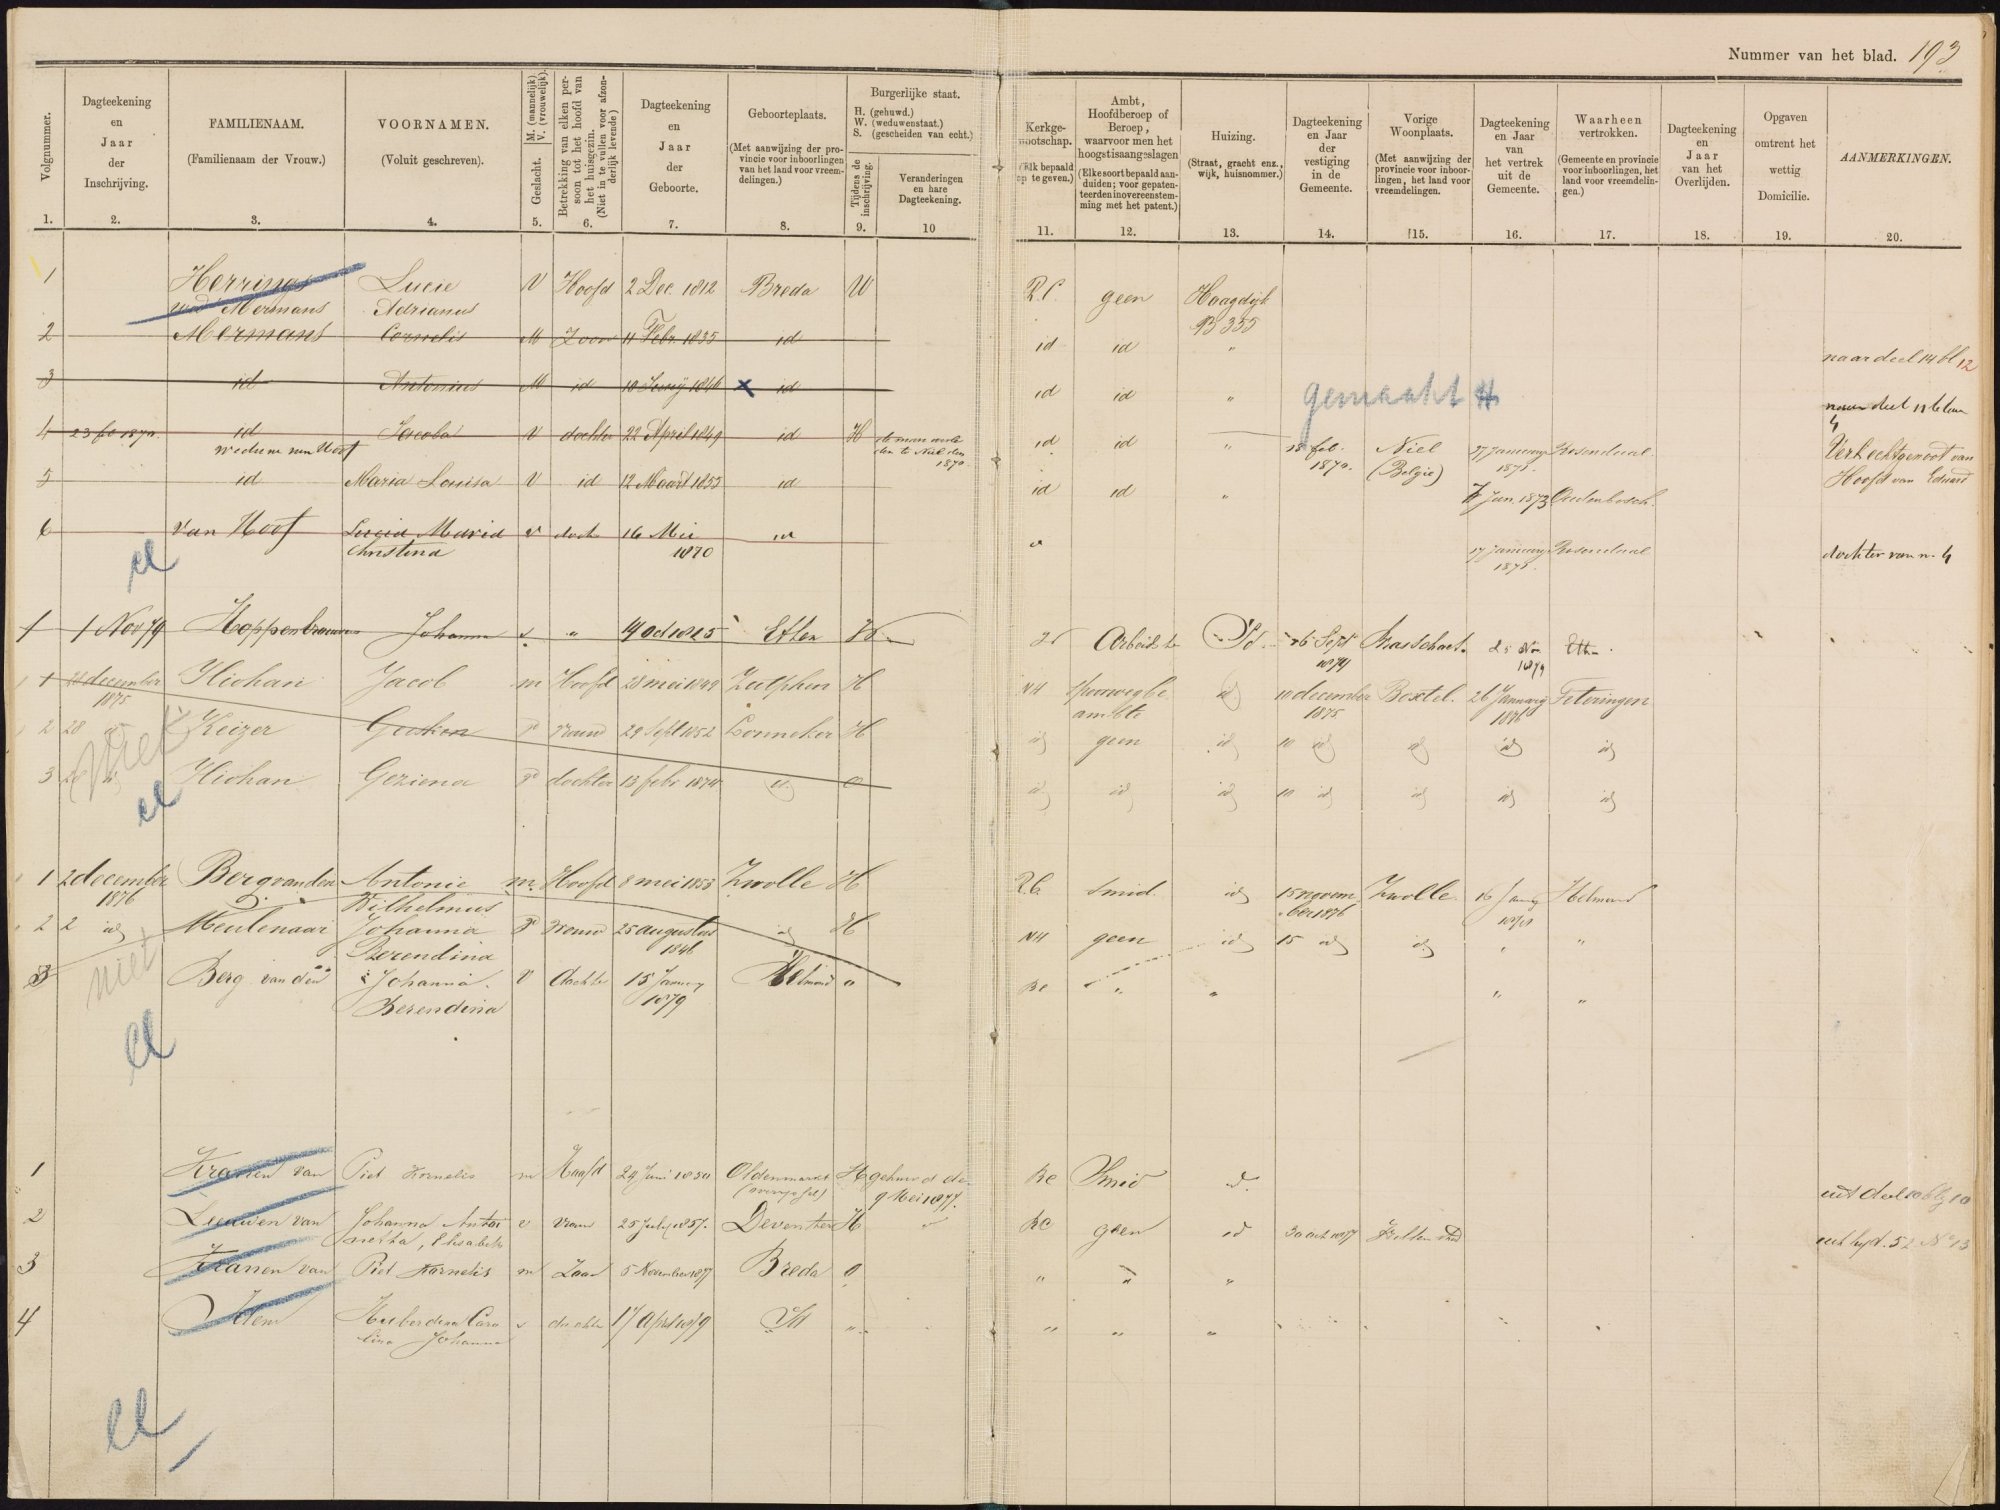 Nummer van het blad. 193
Volgnummer.
Dagteekening en Jaar der Inschrijving.
FAMILIENAAM.
(Familienaam der Vrouw.)
VOORNAMEN.
(Voluit geschreven).
Geslacht. M. (mannelijk) V. (vrouwelijk).
Betrekking van elken persoon tot het hoofd van het huisgezin. (Niet in te vullen voor afzonderlijk levende)
Dagteekening en Jaar der Geboorte.
Geboorteplaats.
(Met aanwijzing der provincie voor inboorlingen van het land voor vreemdelingen.)
Burgerlijke staat.
H. (gehuwd.)
W. (weduwenstaat.)
S. (gescheiden van echt.)
Tijdens de inschrijving.
Veranderingen en hare Dagteekening.
Kerkgenootschap.
(Elk bepaald op te geven.)
Ambt, Hoofdberoep of Beroep, waarvoor men het hoogst is aangeslagen
(Elke soort bepaald aanduiden; voor gepatenteerden in overeenstemming met het patent.)
Huizing.
(Straat, gracht enz., wijk, huisnommer.)
Dagteekening en Jaar der vestiging in de Gemeente.
Vorige Woonplaats.
(Met aanwijzing der provincie voor inboorlingen, het land voor vreemdelingen.
Dagteekening en Jaar van het vertrek uit de Gemeente.
Waarheen vertrokken.
(Gemeente en provincie voor inboorlingen, het land voor vreemdelingen.)
Dagteekening en Jaar van het Overlijden.
Opgaven omtrent het wettig Domicilie.
AANMERKINGEN.
1. 2. 3. 4. 5. 6. 7. 8. 9. 10 11. 12. 13. 14. 15. 16. 17. 18. 19. 20.
1 Herrings Lucie V Hoofd 2 Dec. 1812 Breda W R.C. geen Haagdijk
wed Mermans Adrianus B 355
2 Mermans Cornelis M Zoon 11 Febr. 1835 id id id " naar deel 14 bl 12
3 id Antonius M id 1846 id id id "
gemaakt
4 23 1870 id Jacoba V dochter 22 April 1849 id H id id " 18 feb. 1870. Niel (Belgie) 17 January 1875 Rosendaal
weduwe van Hoof
5 id Maria Louisa V id 12 Maart 1855 id id id " Jan. 1873 Oudenbosch. Hoofd van
6 van Hoof Lucia Maria v doch 16 Mei 1870 17 January 1875 Rosendaal dochter van n. 4
Christina
1 1 Nov 79 Hoppenbrouwers Johanna v " 14 Oct 1825 Etten Id 26 Sept 1874 Brasschaet. 25 Nov. 1879 Etten
1 28 december 1875 Hiohan Jacob m Hoofd 28 mei 1849 Zutphen H NH spoorwegbeambte id 10 december 1875 Boxtel. 26 January 1876 Teteringen
2 28 id Keizer Gesken v vrouw 29 Sept 1852 Lonneker H id geen id 10 id id id id
niet
3 28 id Hiohan Geziena v dochter 13 febr 1874 id. o id id id 10 id id id id
1 2 december 1876 Berg van den Antonie m. Hoofd 8 mei 1853 Zwolle H R.C. smid id 15 november 1876 Zwolle. 16 Helmond
Wilhelmus
2 2 id Meulenaar Johanna v vrouw 25 augustus 1846 id H NH geen id 15 id id " "
Berendina
niet
3 Berg van den Johanna. V dochter 15 January 1879 Helmond " RC " " " "
Berendina
1 Kranen van Piet Kornelis m Hoofd 29 Juni 1850 Oldenmarkt (overyssel) H gehuwd de 9 Mei 1877. RC Smid id. uit deel 10 blz 10
2 Leeuwen van Johanna v Vrouw 25 July 1857. Deventer H RC geen id 30 oct 1877
3 Kranen van Piet Kornelis m Zoon 5 November 1877 Breda o " " "
4 Idem Huberdina Caro v dochter 17 April 1879 Id " " " "
lina Johanna